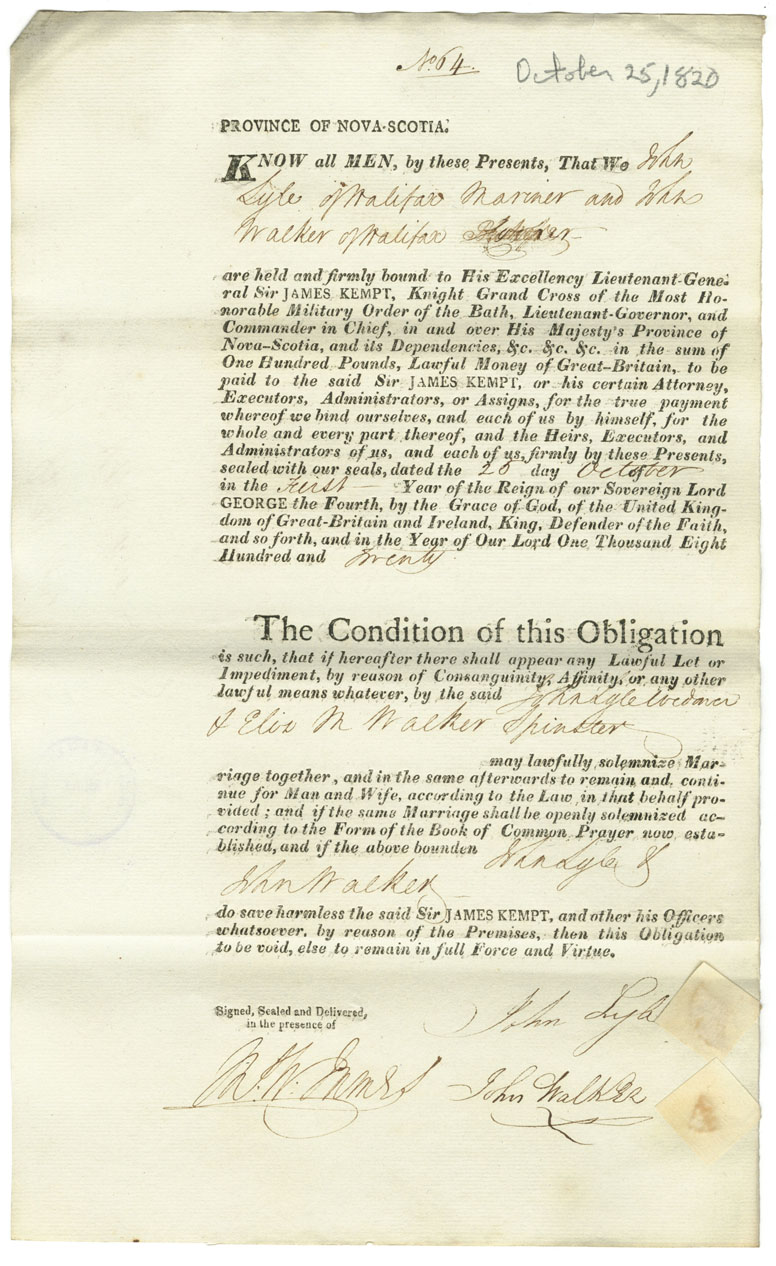 No 64.
October 25, 1820
PROVINCE OF NOVA-SCOTIA.
KNOW all MEN, by these Presents, That We John
Lyle of Halifax Mariner and John
Walker of Halifax
are held and firmly bound to His Excellency Lieutenant-Gene-
ral Sir JAMES KEMPT, Knight Grand Cross of the Most Ho-
norable Military Order of the Bath, Lieutenant-Governor, and
Commander in Chief, in and over His Majesty's Province of
Nova-Scotia, and its Dependencies, &c. &c. &c. in the sum of
One Hundred Pounds, Lawful Money of Great-Britain, to be
paid to the said Sir JAMES KEMPT, or his certain Attorney,
Executors, Administrators, or Assigns, for the true payment
whereof we bind ourselves, and each of us by himself, for the
whole and every part thereof, and the Heirs, Executors, and
Administrators of us, and each of us, firmly by these Presents,
sealed with our seals, dated the 25 day of October
in the First Year of the Reign of our Sovereign Lord
GEORGE the Fourth, by the Grace of God, of the United King-
dom of Great-Britain and Ireland, King, Defender of the Faith,
and so forth, and in the Year of Our Lord One Thousand Eight
Hundred and Twenty
The Condition of this Obligation
is such, that if hereafter there shall appear any Lawful Let or
Impediment, by reason of Consanguinity, Affinity, or any other
lawful means whatever, by the said John Lyle Widower
& Eliz M Walker Spinster
may lawfully solemnize Mar-
riage together, and in the same afterwards to remain and conti-
nue for Man and Wife, according to the Law in that behalf pro-
vided; and if the same Marriage shall be openly solemnized ac-
cording to the Form of the Book of Common Prayer now esta-
blished, and if the above bounden John Lyle &
John Walker
do save harmless the said Sir JAMES KEMPT, and other his Officers
whatsoever, by reason of the Premises, then this Obligation
to be void, else to remain in full Force and Virtue.
Signed, Sealed and Delivered,
in the presence of
John Lyle
John Walker